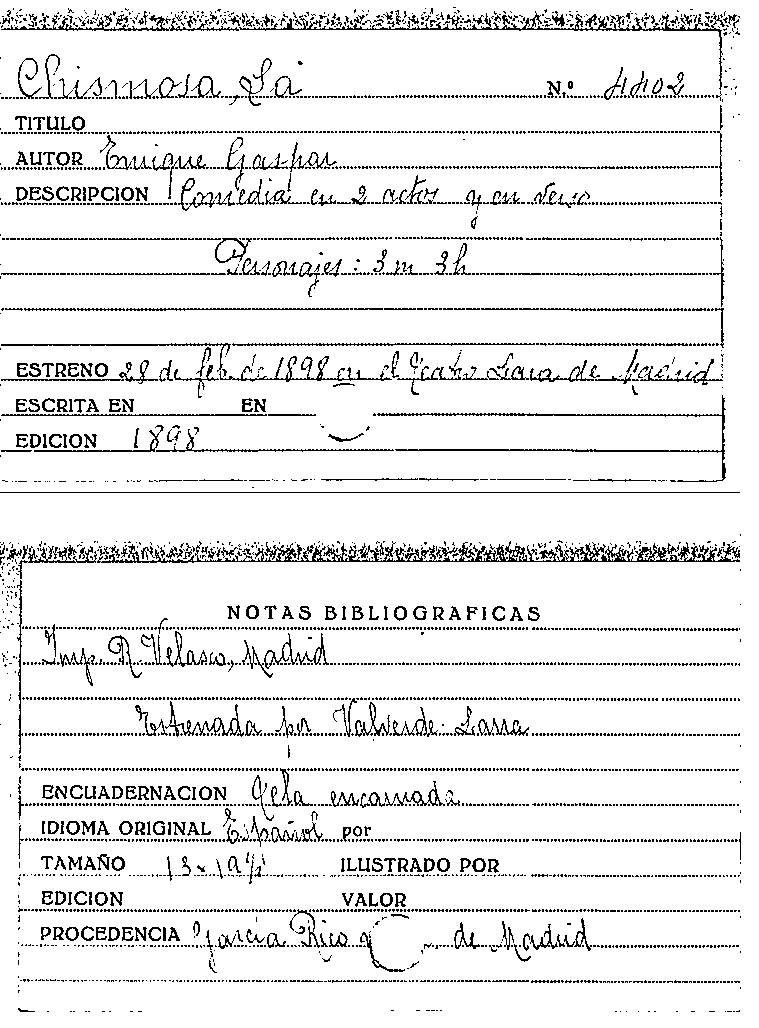 Chismosa, La N.º 4402
TITULO
AUTOR Enrique Gaspar
DESCRIPCION Comedia en 2 actos y en verso
Personajes: 3 m 3 h
ESTRENO 28 de feb. de 1898 en el Teatro Lara de Madrid
ESCRITA EN EN
EDICION 1898
NOTAS BIBLIOGRAFICAS
Imp. R. Velasco, Madrid
Estrenada por Valverde-Larra
ENCUADERNACION Tela encarnada
IDIOMA ORIGINAL Español por
TAMAÑO 13 x 19½ ILUSTRADO POR
EDICION VALOR
PROCEDENCIA García Rico y de Madrid